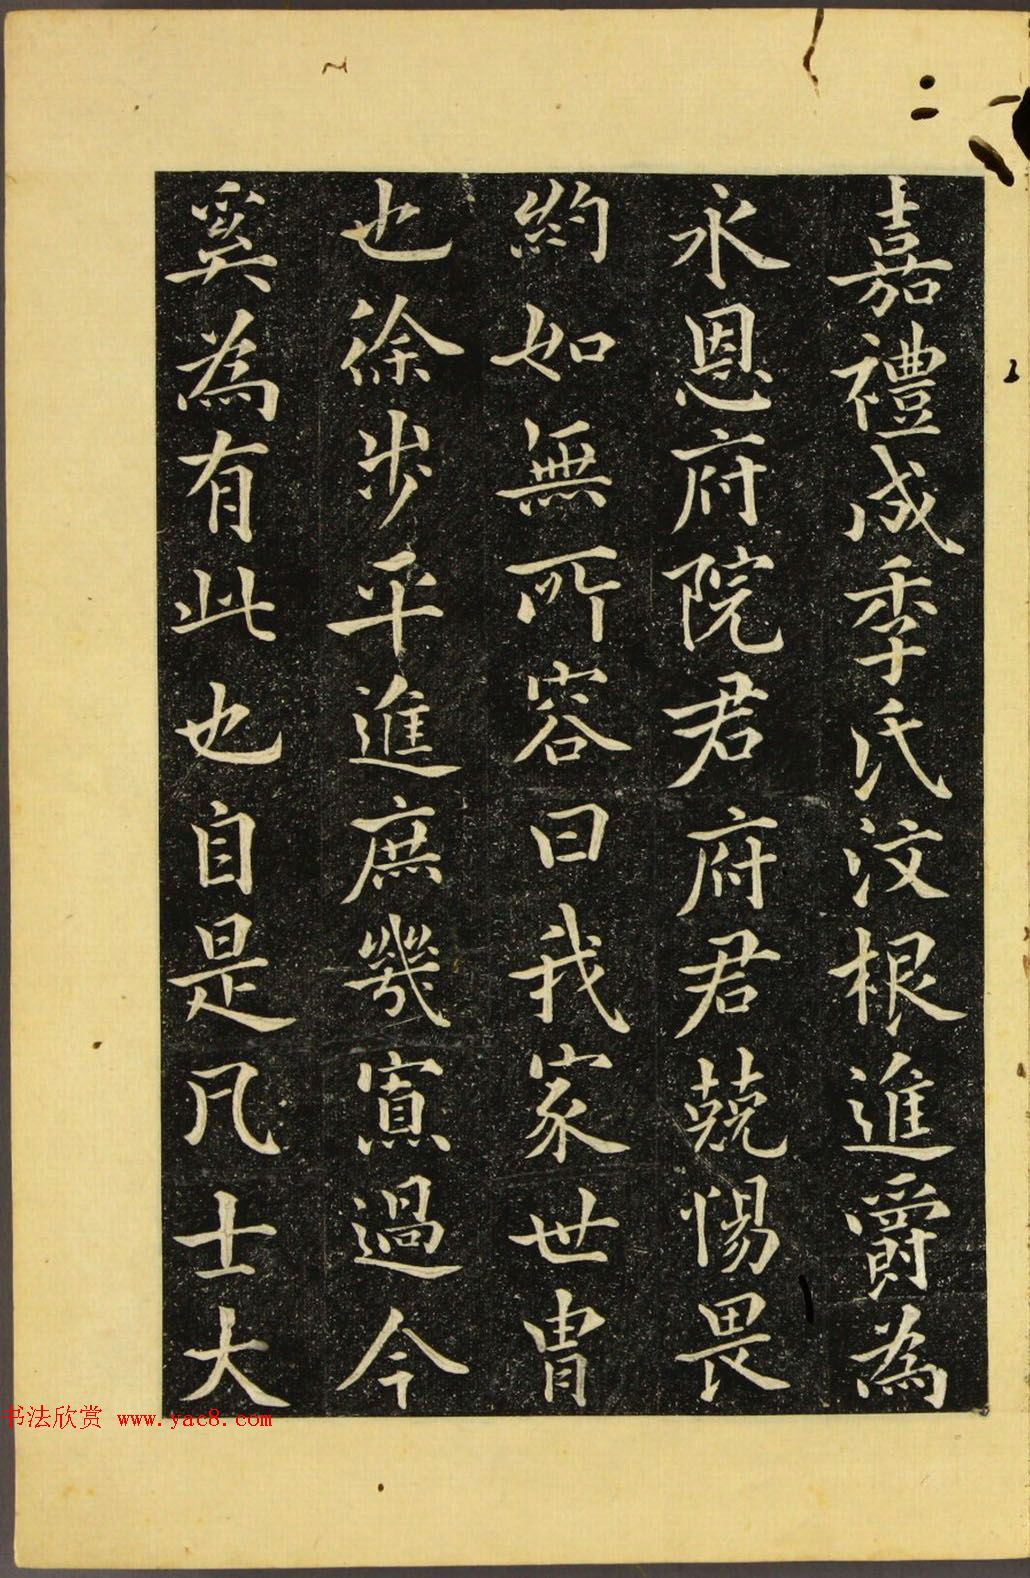 嘉禮成季氏汶根進爵為
永恩府院君府君兢惕畏
約如無所容曰我家世冑
也徐步平進庶幾寡過今
奚為有此也自是凡士大
书法欣赏 www.yac8.com